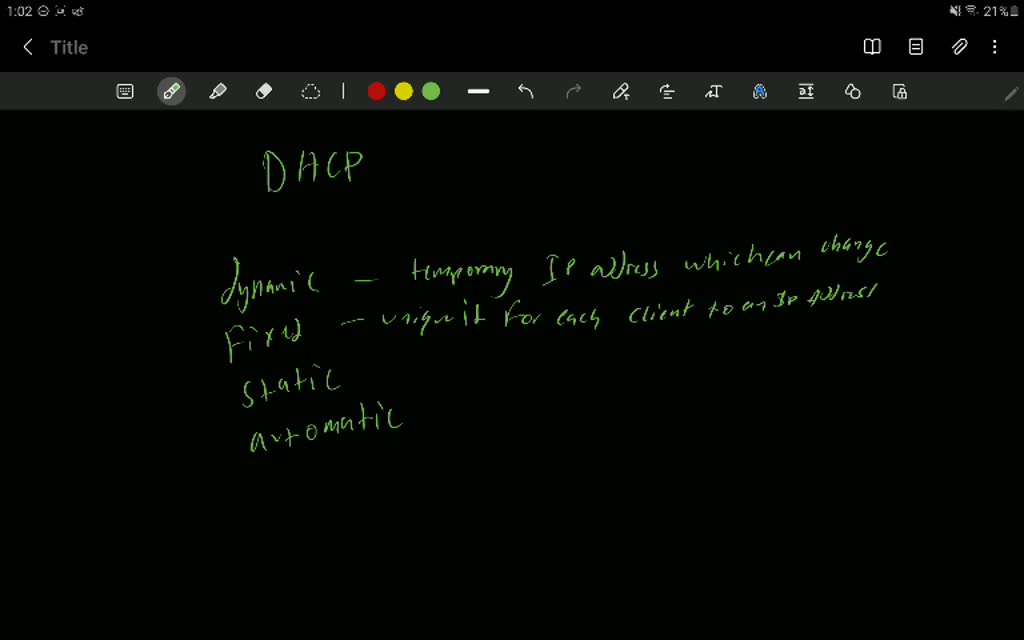 1:02
21%
Title
DHCP
dynamic — temporary IP address which can change
Fixed — unique id for each client to an IP Address
static
automatic